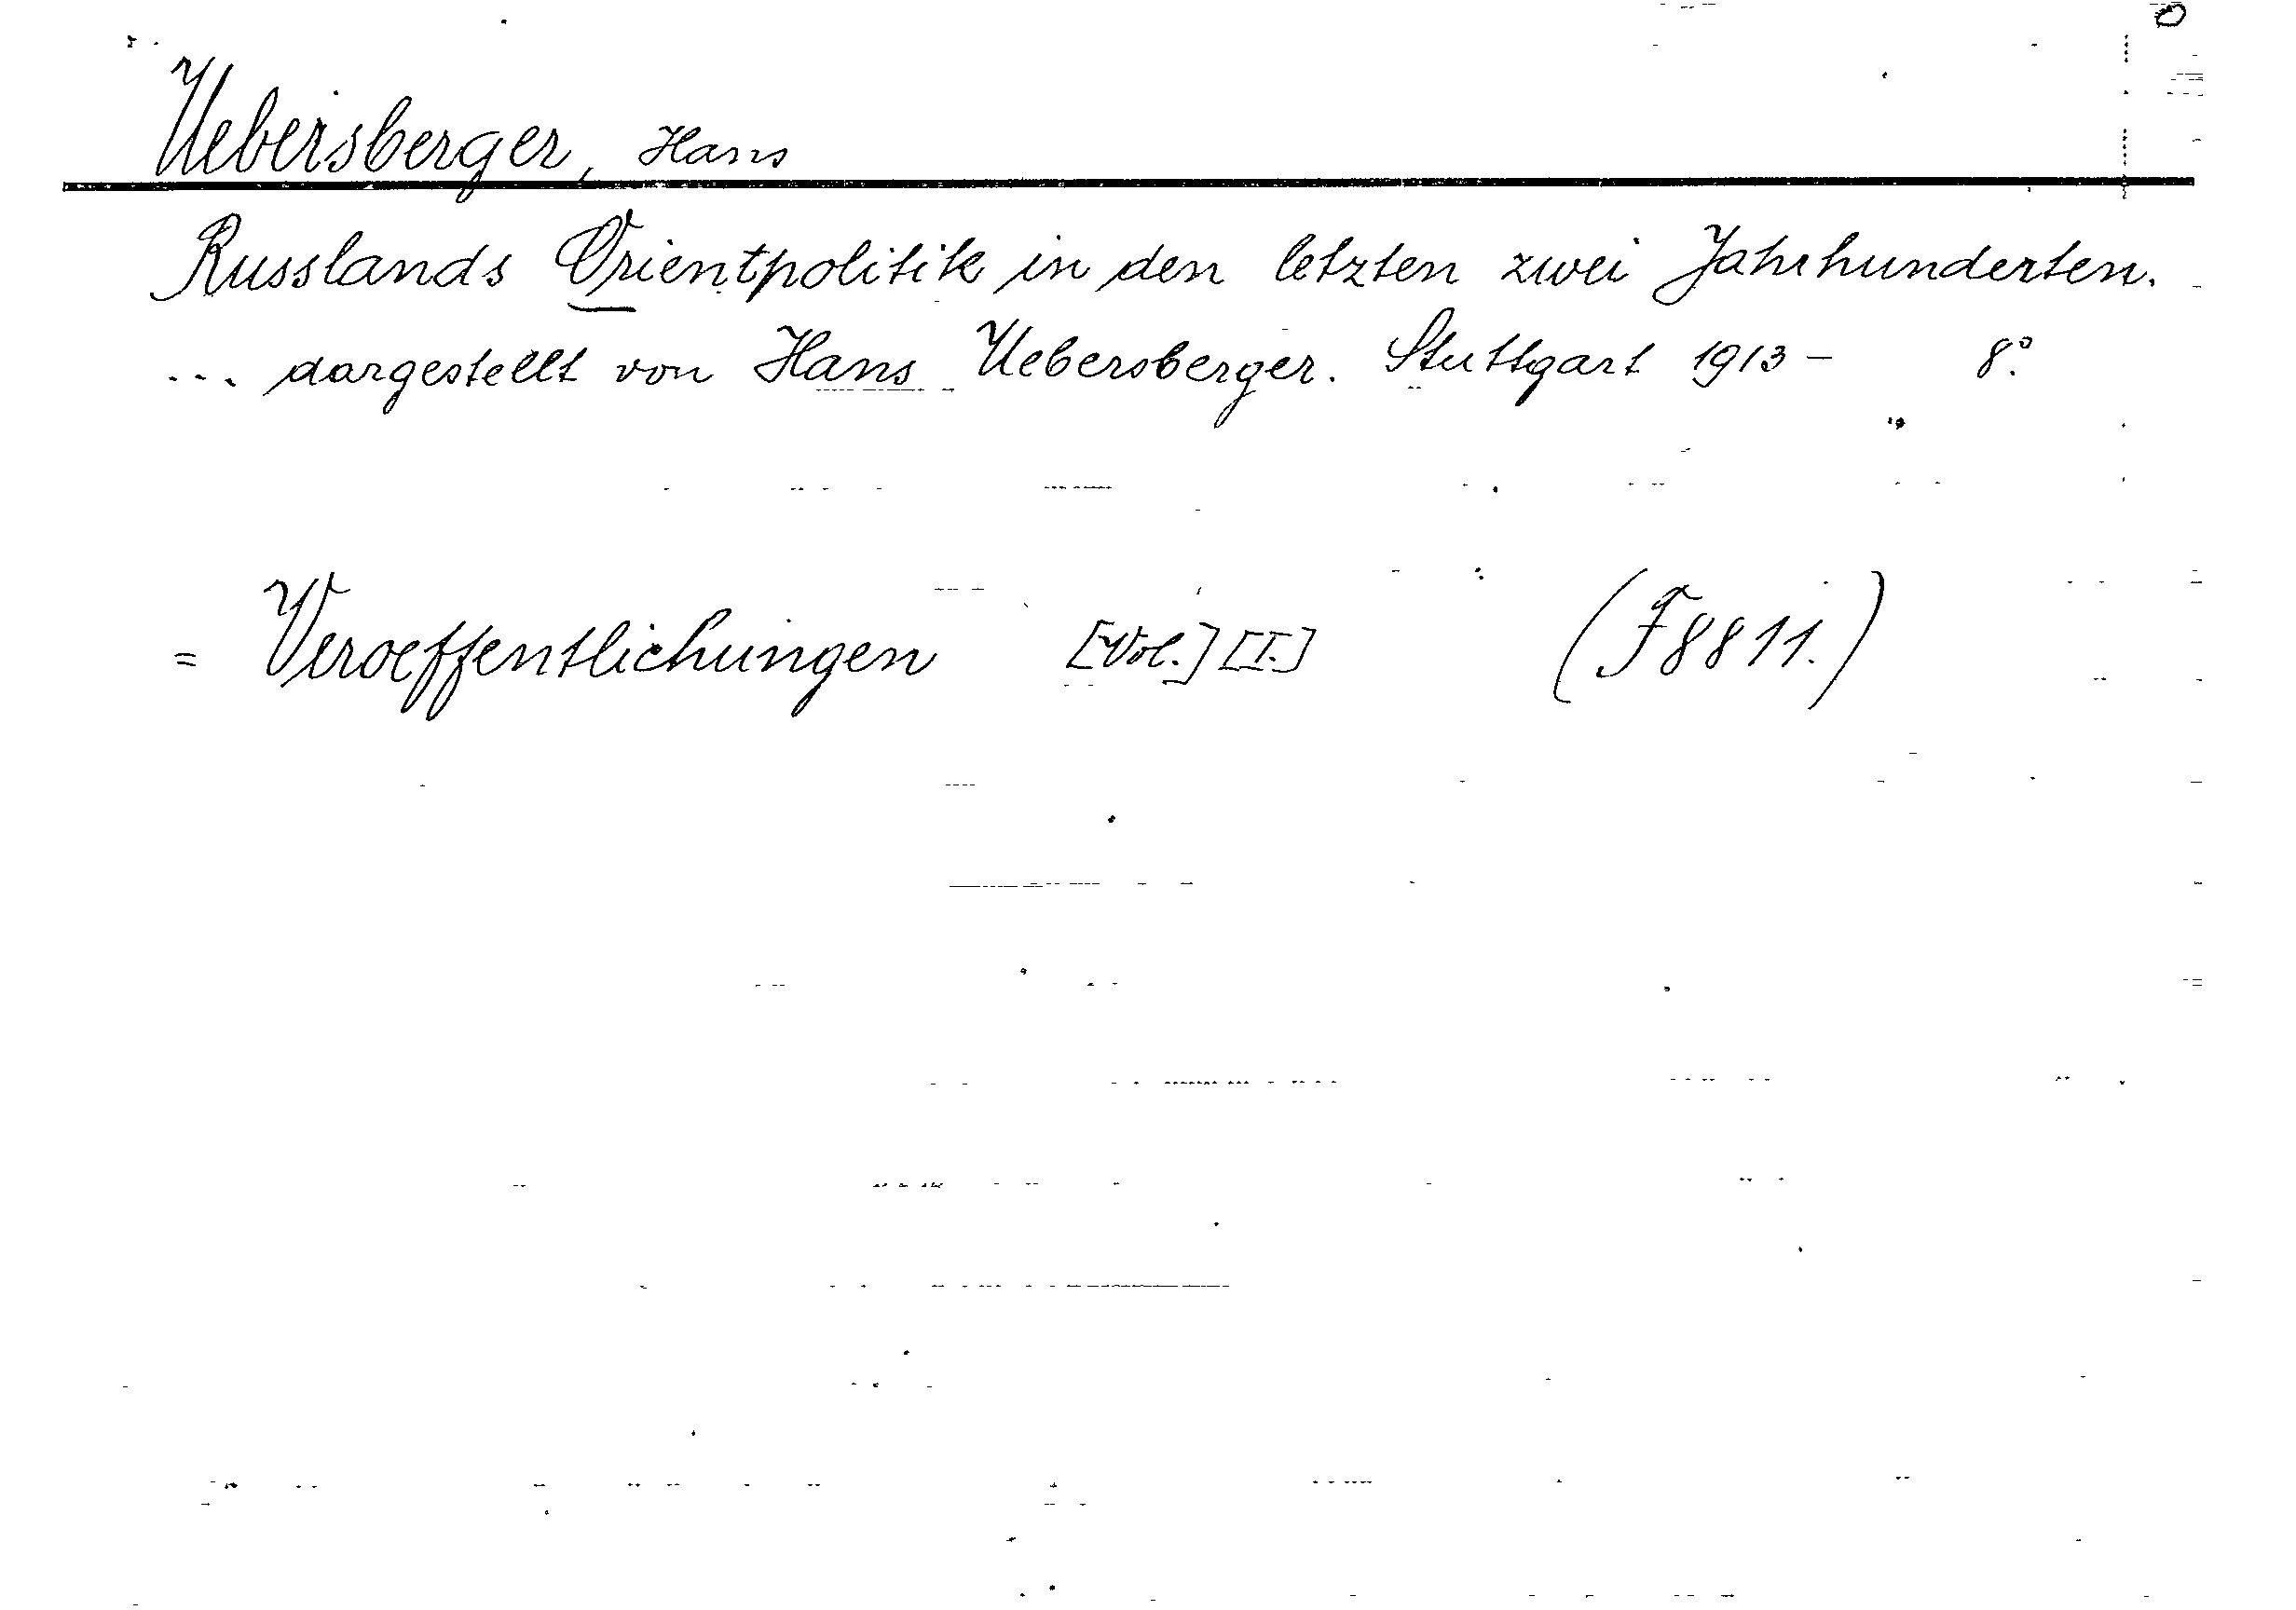 Uebersberger, Hans
Russlands Orientpolitik in den letzten zwei Jahrhunderten.
... dargestellt von Hans Uebersberger. Stuttgart 1913 – 8°.
= Veroeffentlichungen [Vol.] [I.] (F8811.)